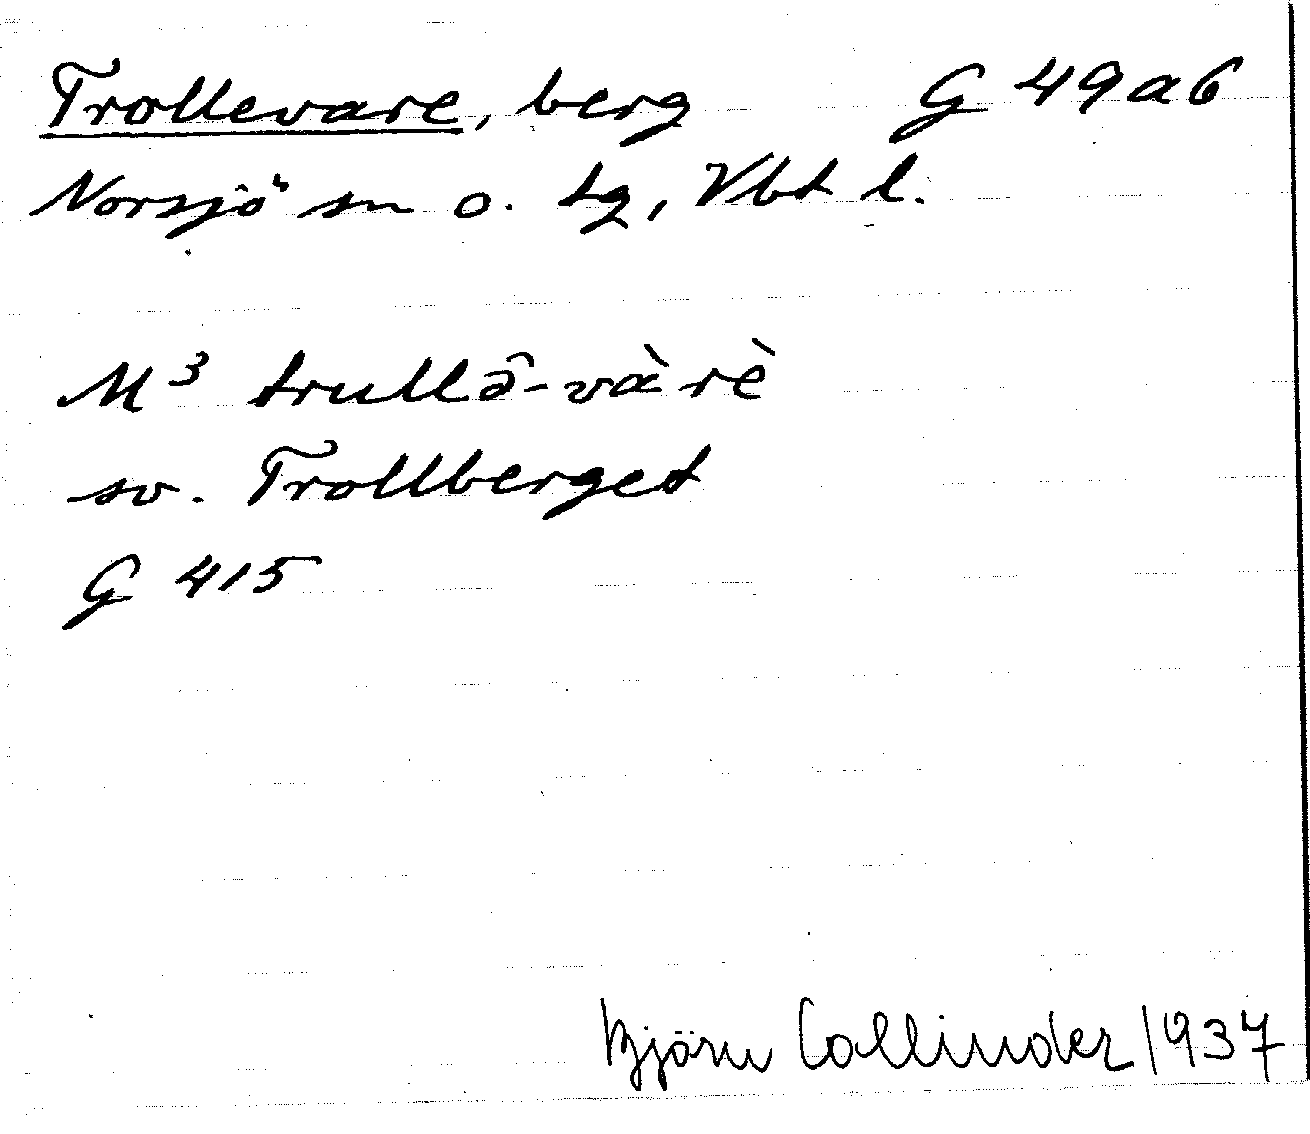 Trollevare, berg G 49a6
Norsjö sn o. tg, Vbt l.
M³ trullə̑-vàrè
sv. Trollberget
G 415
Björn Collinder 1937